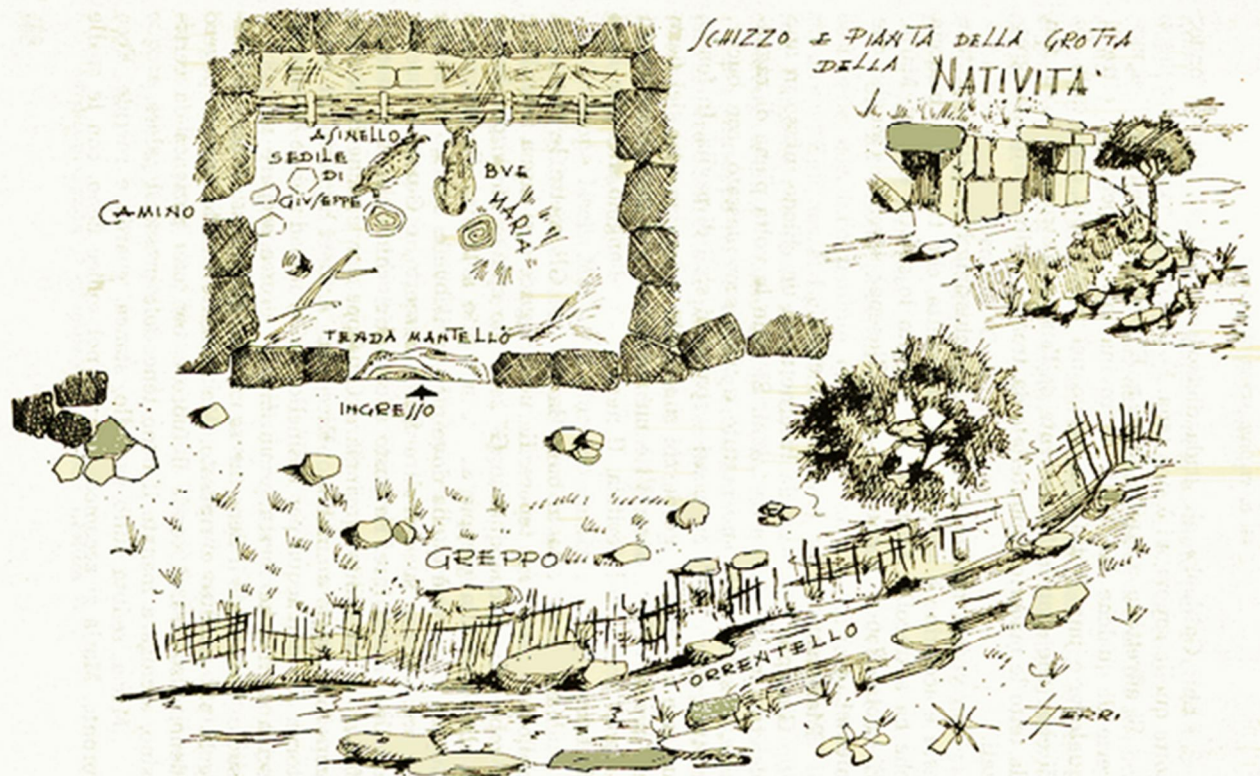 SCHIZZO E PIANTA DELLA GROTTA
DELLA NATIVITA'
ASINELLO
SEDILE
DI
GIUSEPPE
BUE
MARIA
CAMINO
TENDA MANTELLO
INGRESSO
GREPPO
TORRENTELLO